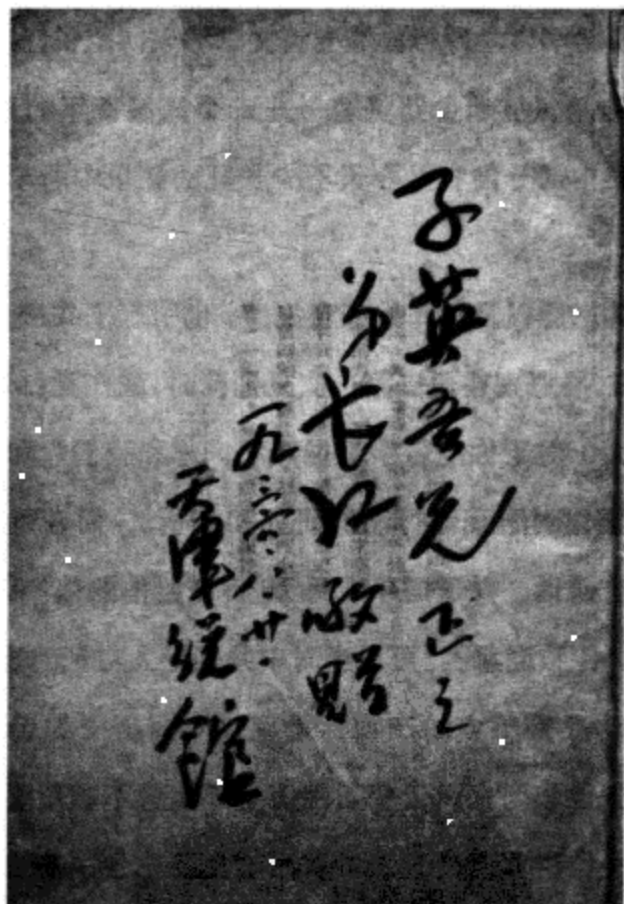 子英吾兄正之
弟长江敬赠
一九三六、八、廿、
天津旅舘